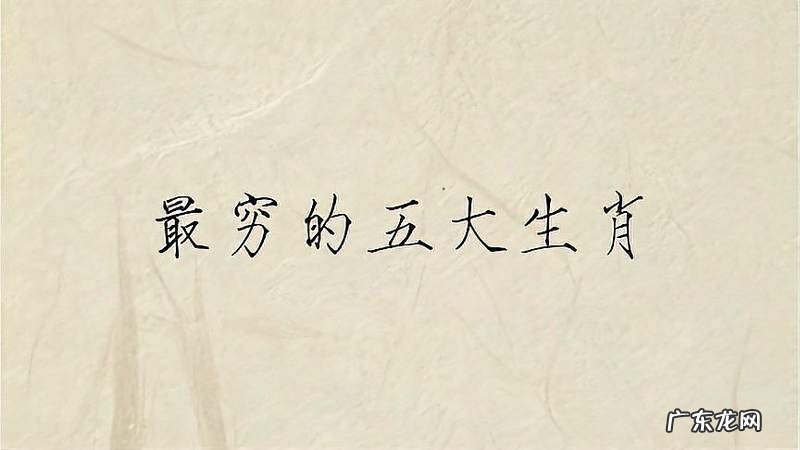 最穷的五大生肖
广东龙网